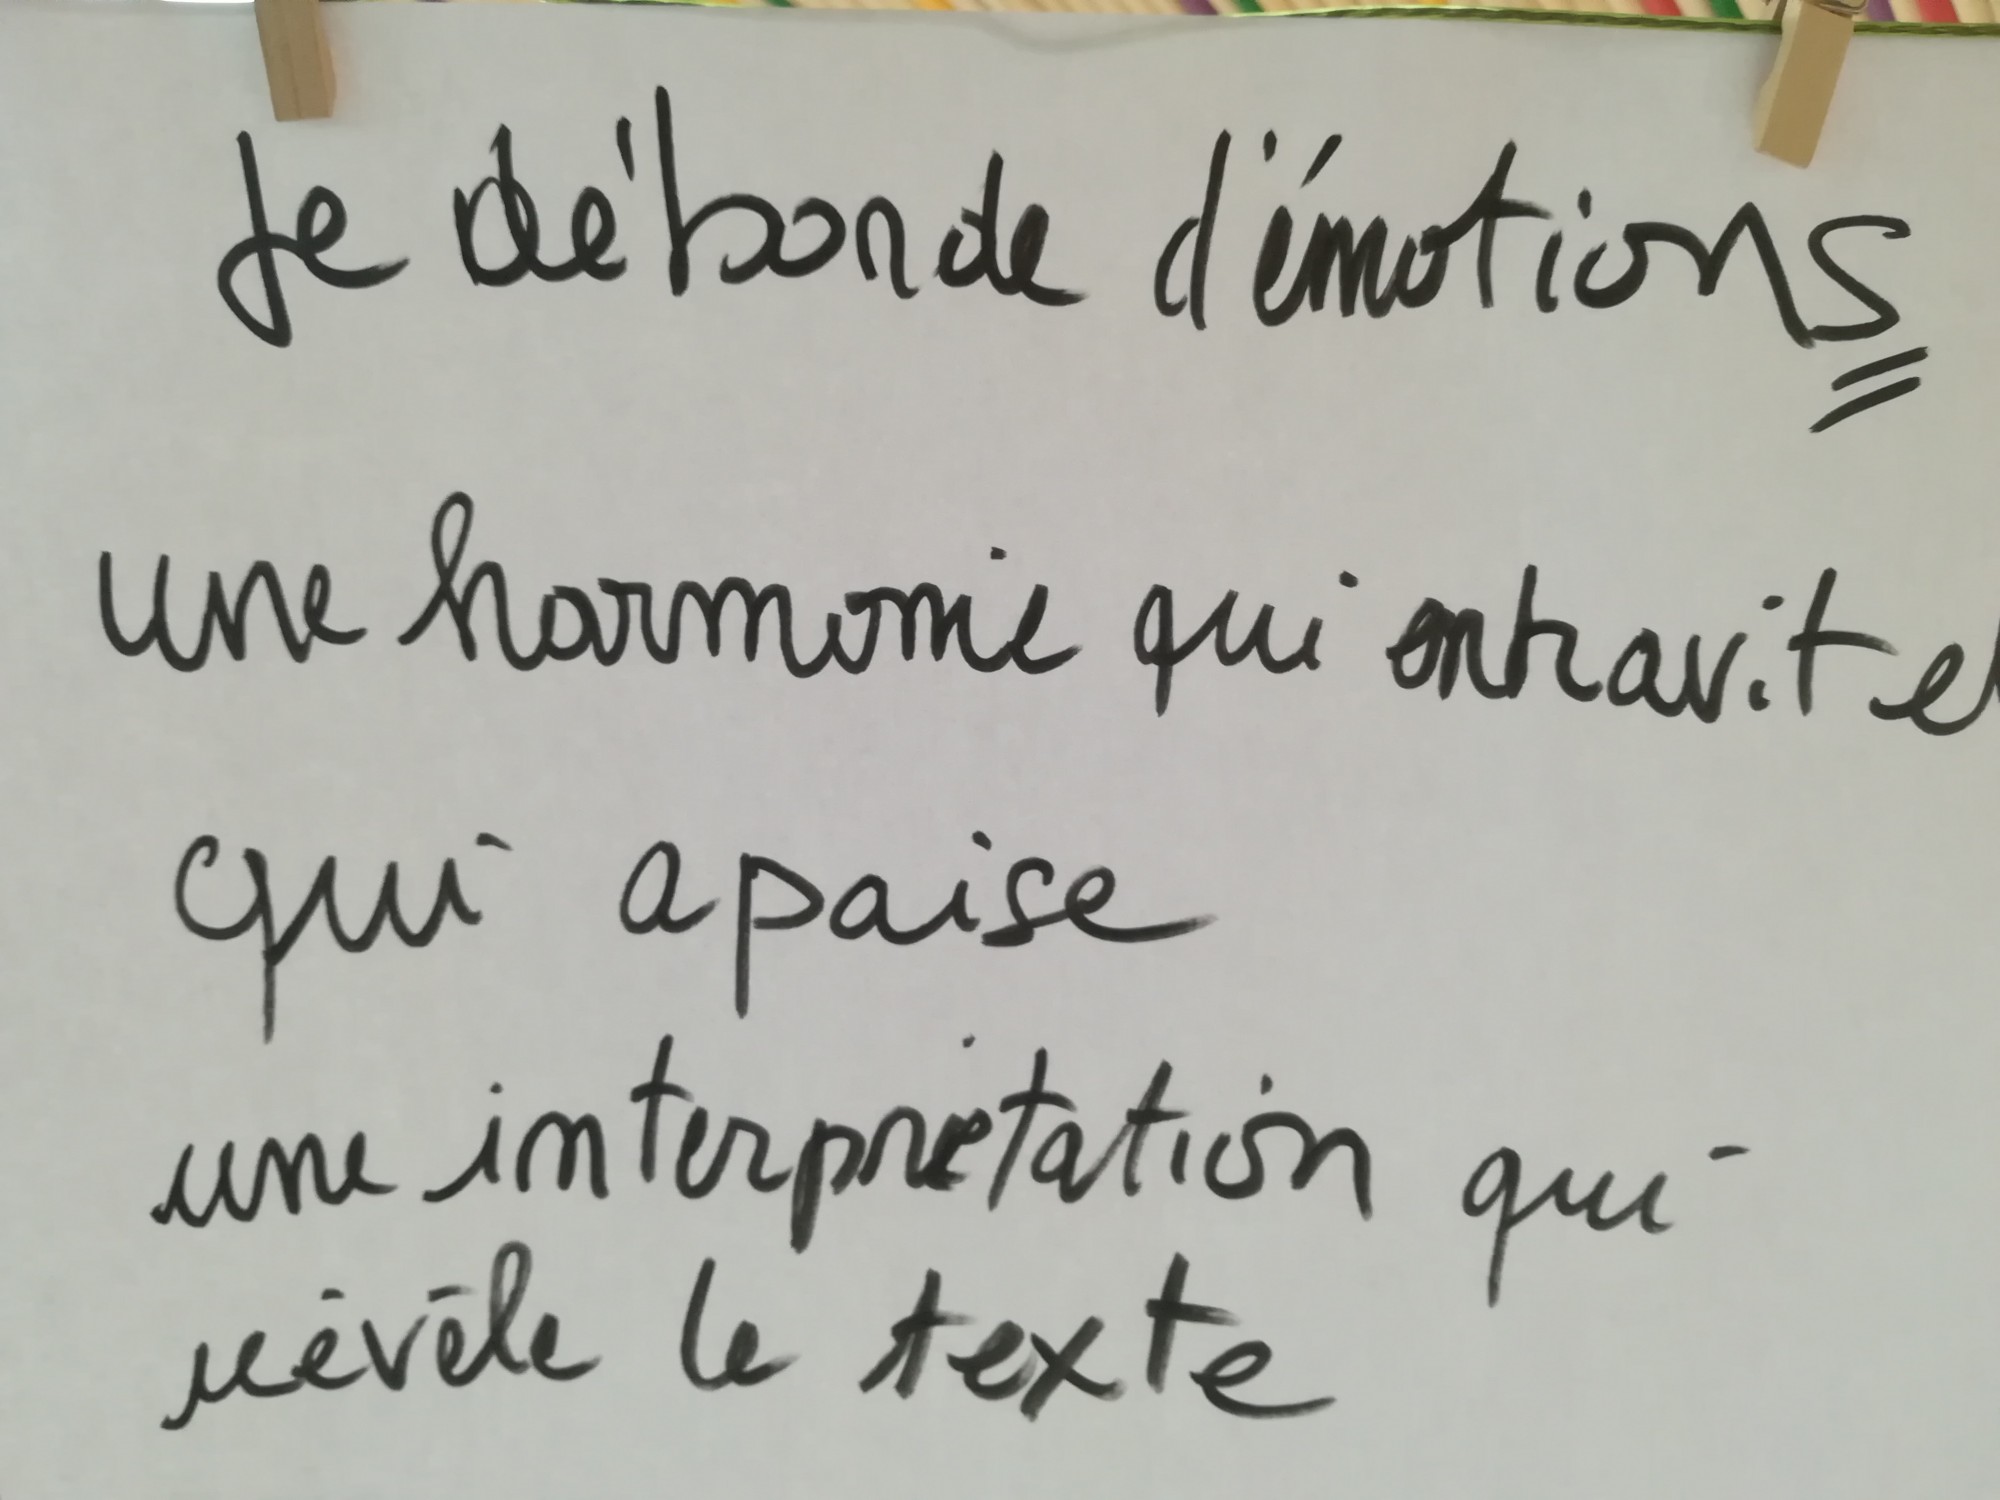 Je déborde d'émotions
une harmonie qui et
qui apaise
une interprétation qui
révèle le texte